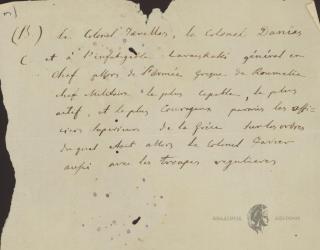 (B) Le Colonel Javellas, le Colonel Danias
et à l'infatigable Karaiskaki général en
chef alors de l'armée grecque de Roumelie
chef militaire le plus capable, le plus
actif, et le plus courageux parmi les offi-
ciers supérieurs de la Grèce sur les ordres
du quel était alors le Colonel Favier
aussi avec les troupes regulieres